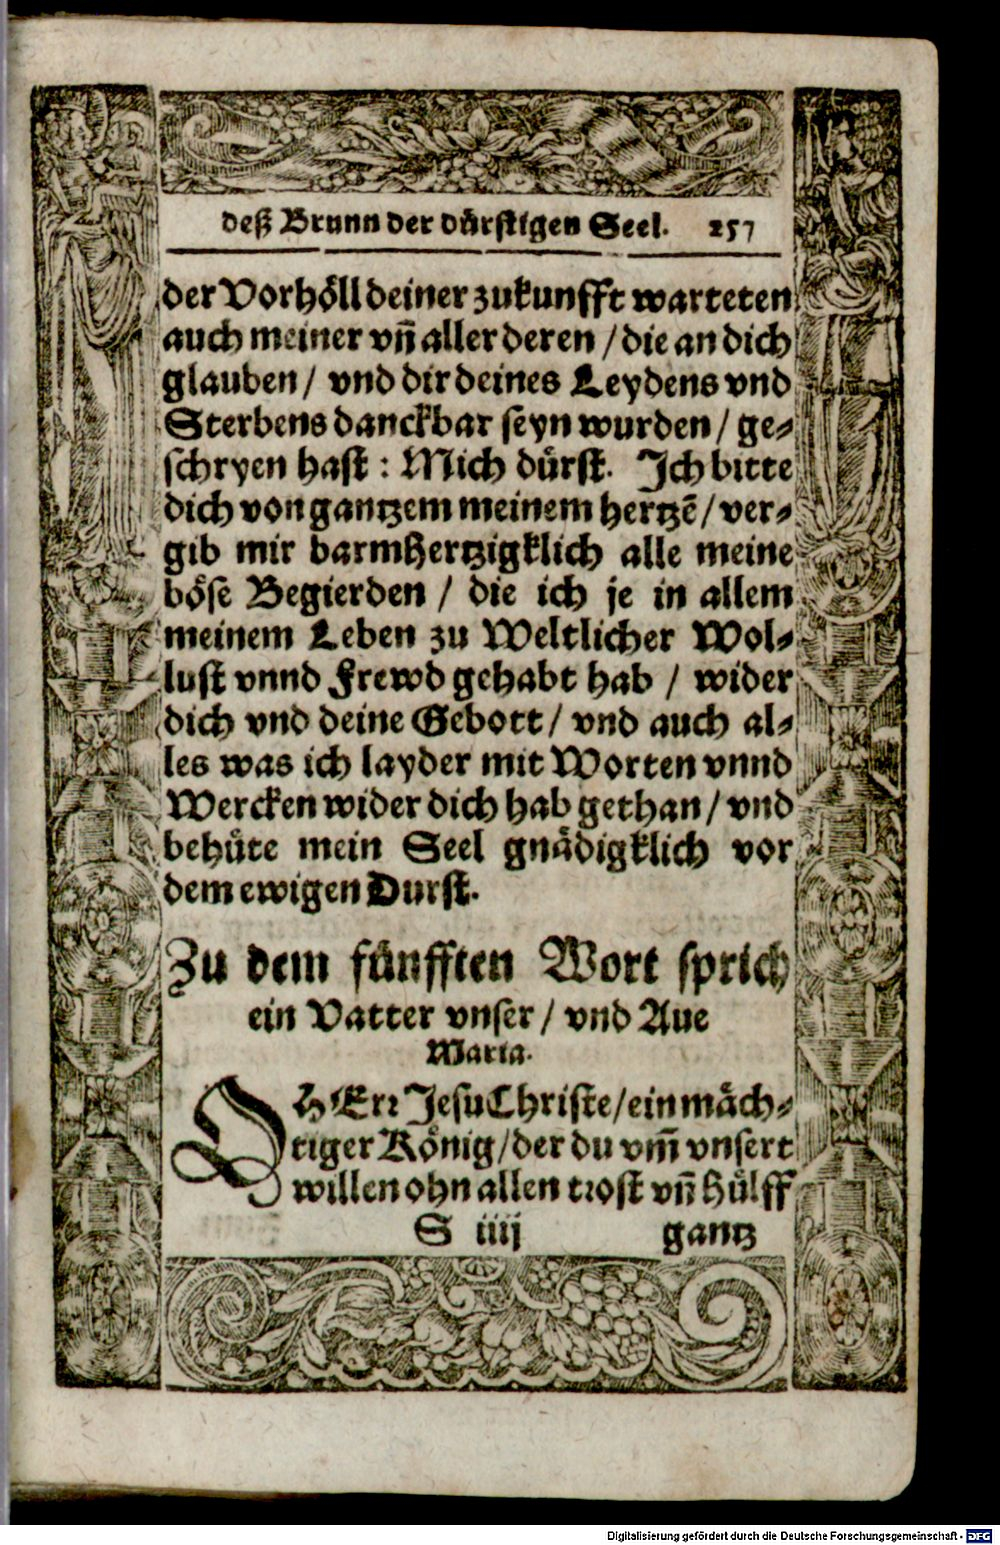 deß Brunn der dürstigen Seel. 257
der Vorhöll deiner zukunfft warteten
auch meiner vñ aller deren / die an dich
glauben / vnd dir deines Leydens vnd
Sterbens danckbar seyn wurden / ge⸗
schryen hast : Mich dürst. Ich bitte
dich von gantzem meinem hertzẽ / ver⸗
gib mir barmhertzigklich alle meine
böse Begierden / die ich je in allem
meinem Leben zu Weltlicher Wol⸗
lust vnnd Frewd gehabt hab / wider
dich vnd deine Gebott / vnd auch al⸗
les was ich layder mit Worten vnnd
Wercken wider dich hab gethan / vnd
behüte mein Seel gnädigklich vor
dem ewigen Durst.
Zu dem fünfften Wort sprich
ein Vatter vnser / vnd Aue
Maria.
O HErr Jesu Christe / ein mäch⸗
tiger König / der du vm̃ vnsert
willen ohn allen trost vñ hülff
S iiij gantz
Digitalisierung gefördert durch die Deutsche Forschungsgemeinschaft - DFG